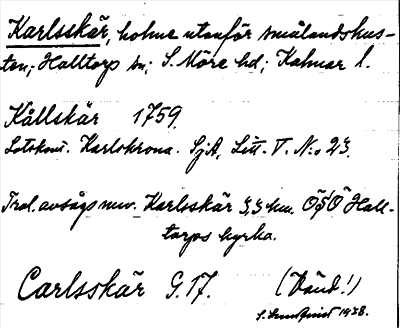 Karlsskär, holme utanför smålandskus-
ten; Halltorp sn; S. Möre hd; Kalmar l.
Kållskär 1759.
Lotskont. Karlskrona. SjA, Litt. V. No 23.
Trol. avsågs nuv. Karlsskär 3,3 km. ÖSÖ Hall-
torps kyrka.
Carlsskär G. 17. (Känd!)
S. 1938.